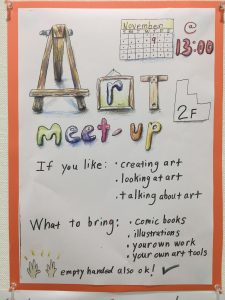 November
@
13:00
Art
meet-up
2F
If you like: • creating art
• looking at art
• talking about art
What to bring: • comic books
• illustrations
• your own work
• your own art tools
empty handed also ok! ✓